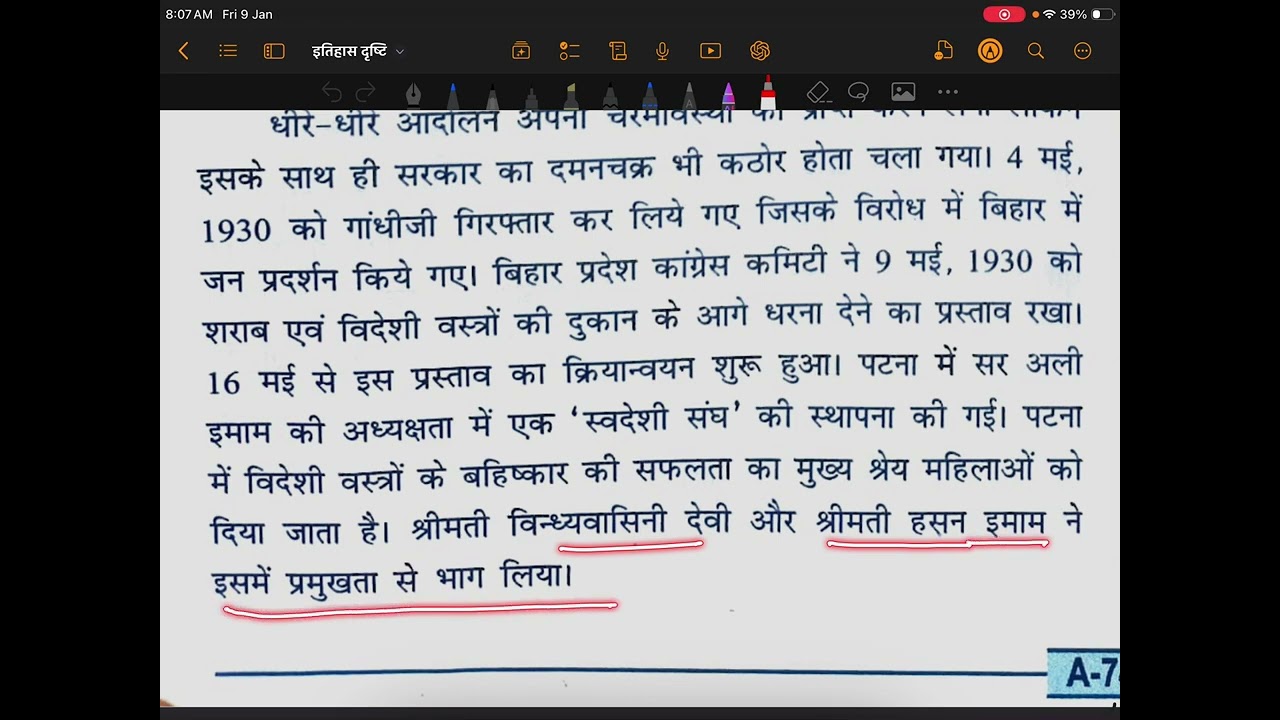 8:07 AM Fri 9 Jan
39%
इतिहास दृष्टि
धीरे-धीरे आंदोलन अपनी चरमावस्था को प्राप्त करने लगा लेकिन
इसके साथ ही सरकार का दमनचक्र भी कठोर होता चला गया। 4 मई,
1930 को गांधीजी गिरफ्तार कर लिये गए जिसके विरोध में बिहार में
जन प्रदर्शन किये गए। बिहार प्रदेश कांग्रेस कमिटी ने 9 मई, 1930 को
शराब एवं विदेशी वस्त्रों की दुकान के आगे धरना देने का प्रस्ताव रखा।
16 मई से इस प्रस्ताव का क्रियान्वयन शुरू हुआ। पटना में सर अली
इमाम की अध्यक्षता में एक ‘स्वदेशी संघ’ की स्थापना की गई। पटना
में विदेशी वस्त्रों के बहिष्कार की सफलता का मुख्य श्रेय महिलाओं को
दिया जाता है। श्रीमती विन्ध्यवासिनी देवी और श्रीमती हसन इमाम ने
इसमें प्रमुखता से भाग लिया।
A-7